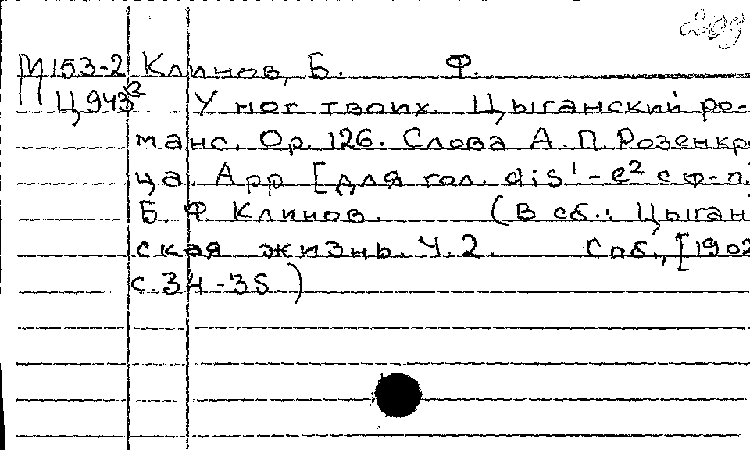 М153-2 Клинов, Б. Ф.
Ц943² У ног твоих. Цыганский ро-
манс. Ор. 126. Слова А. П. Розенкр
ца. Арр [для гол. dis¹-e² с ф-п.
Б. Ф Клинов. (В сб.: Цыган
ская жизнь. Ч. 2. Спб., [1902
с. 34-35)